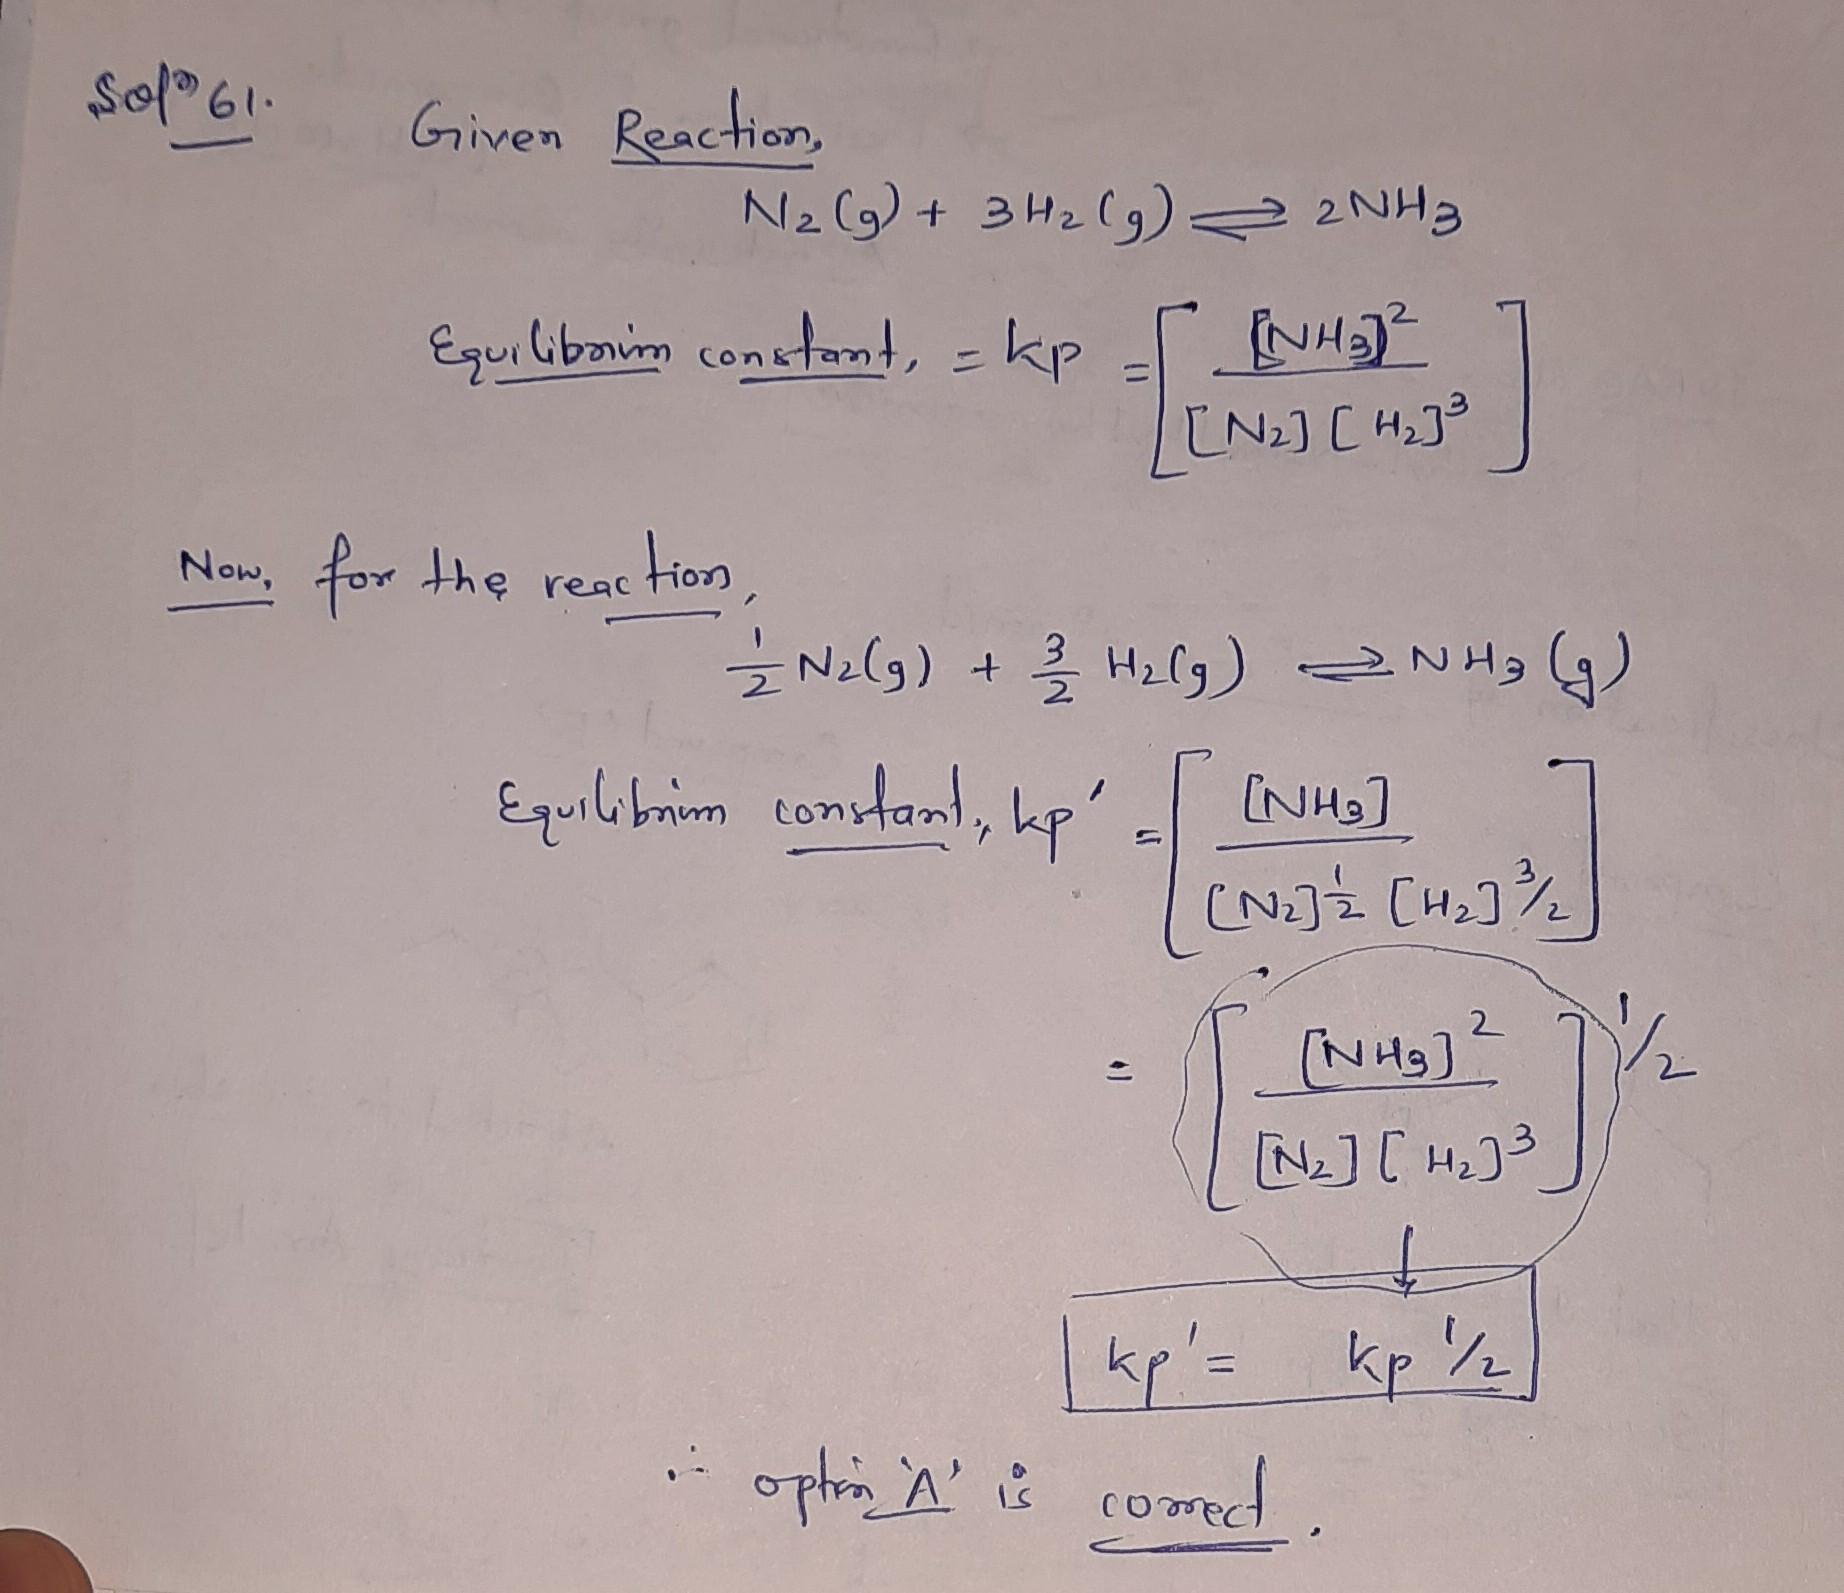 Solⁿ 61.
Given Reaction,
N₂(g) + 3H₂(g) ⇌ 2NH₃
Equilibrium constant, = kp = [ [NH₃]² / [N₂] [H₂]³ ]
Now, for the reaction,
1/2 N₂(g) + 3/2 H₂(g) ⇌ NH₃(g)
Equilibrium constant, kp' = [ [NH₃] / [N₂]^1/2 [H₂]^3/2 ]
= [ [NH₃]² / [N₂] [H₂]³ ]^1/2
↓
kp' = kp^1/2
∴ option 'A' is correct.